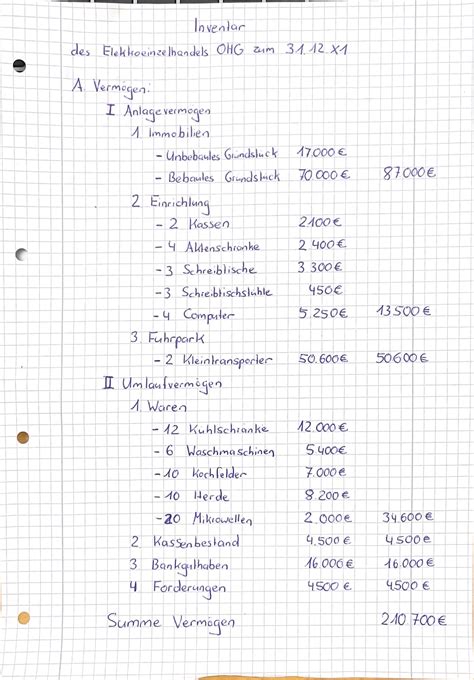 Inventar
des Elektroeinzelhandels OHG zum 31.12.X1
A. Vermögen:
I Anlagevermögen
1. Immobilien
- Unbebautes Grundstück 17.000€
- Bebautes Grundstück 70.000€ 87.000€
2. Einrichtung
- 2 Kassen 2100€
- 4 Aktenschränke 2.400€
- 3 Schreibtische 3.300€
- 3 Schreibtischstühle 450€
- 4 Computer 5.250€ 13.500€
3. Fuhrpark
- 2 Kleintransporter 50.600€ 50.600€
II Umlaufvermögen
1. Waren
- 12 Kühlschränke 12.000€
- 6 Waschmaschinen 5.400€
- 10 Kochfelder 7.000€
- 10 Herde 8.200€
- 20 Mikrowellen 2.000€ 34.600€
2 Kassenbestand 4.500€ 4500€
3 Bankguthaben 16.000€ 16.000€
4 Forderungen 4500€ 4.500€
Summe Vermögen 210.700€